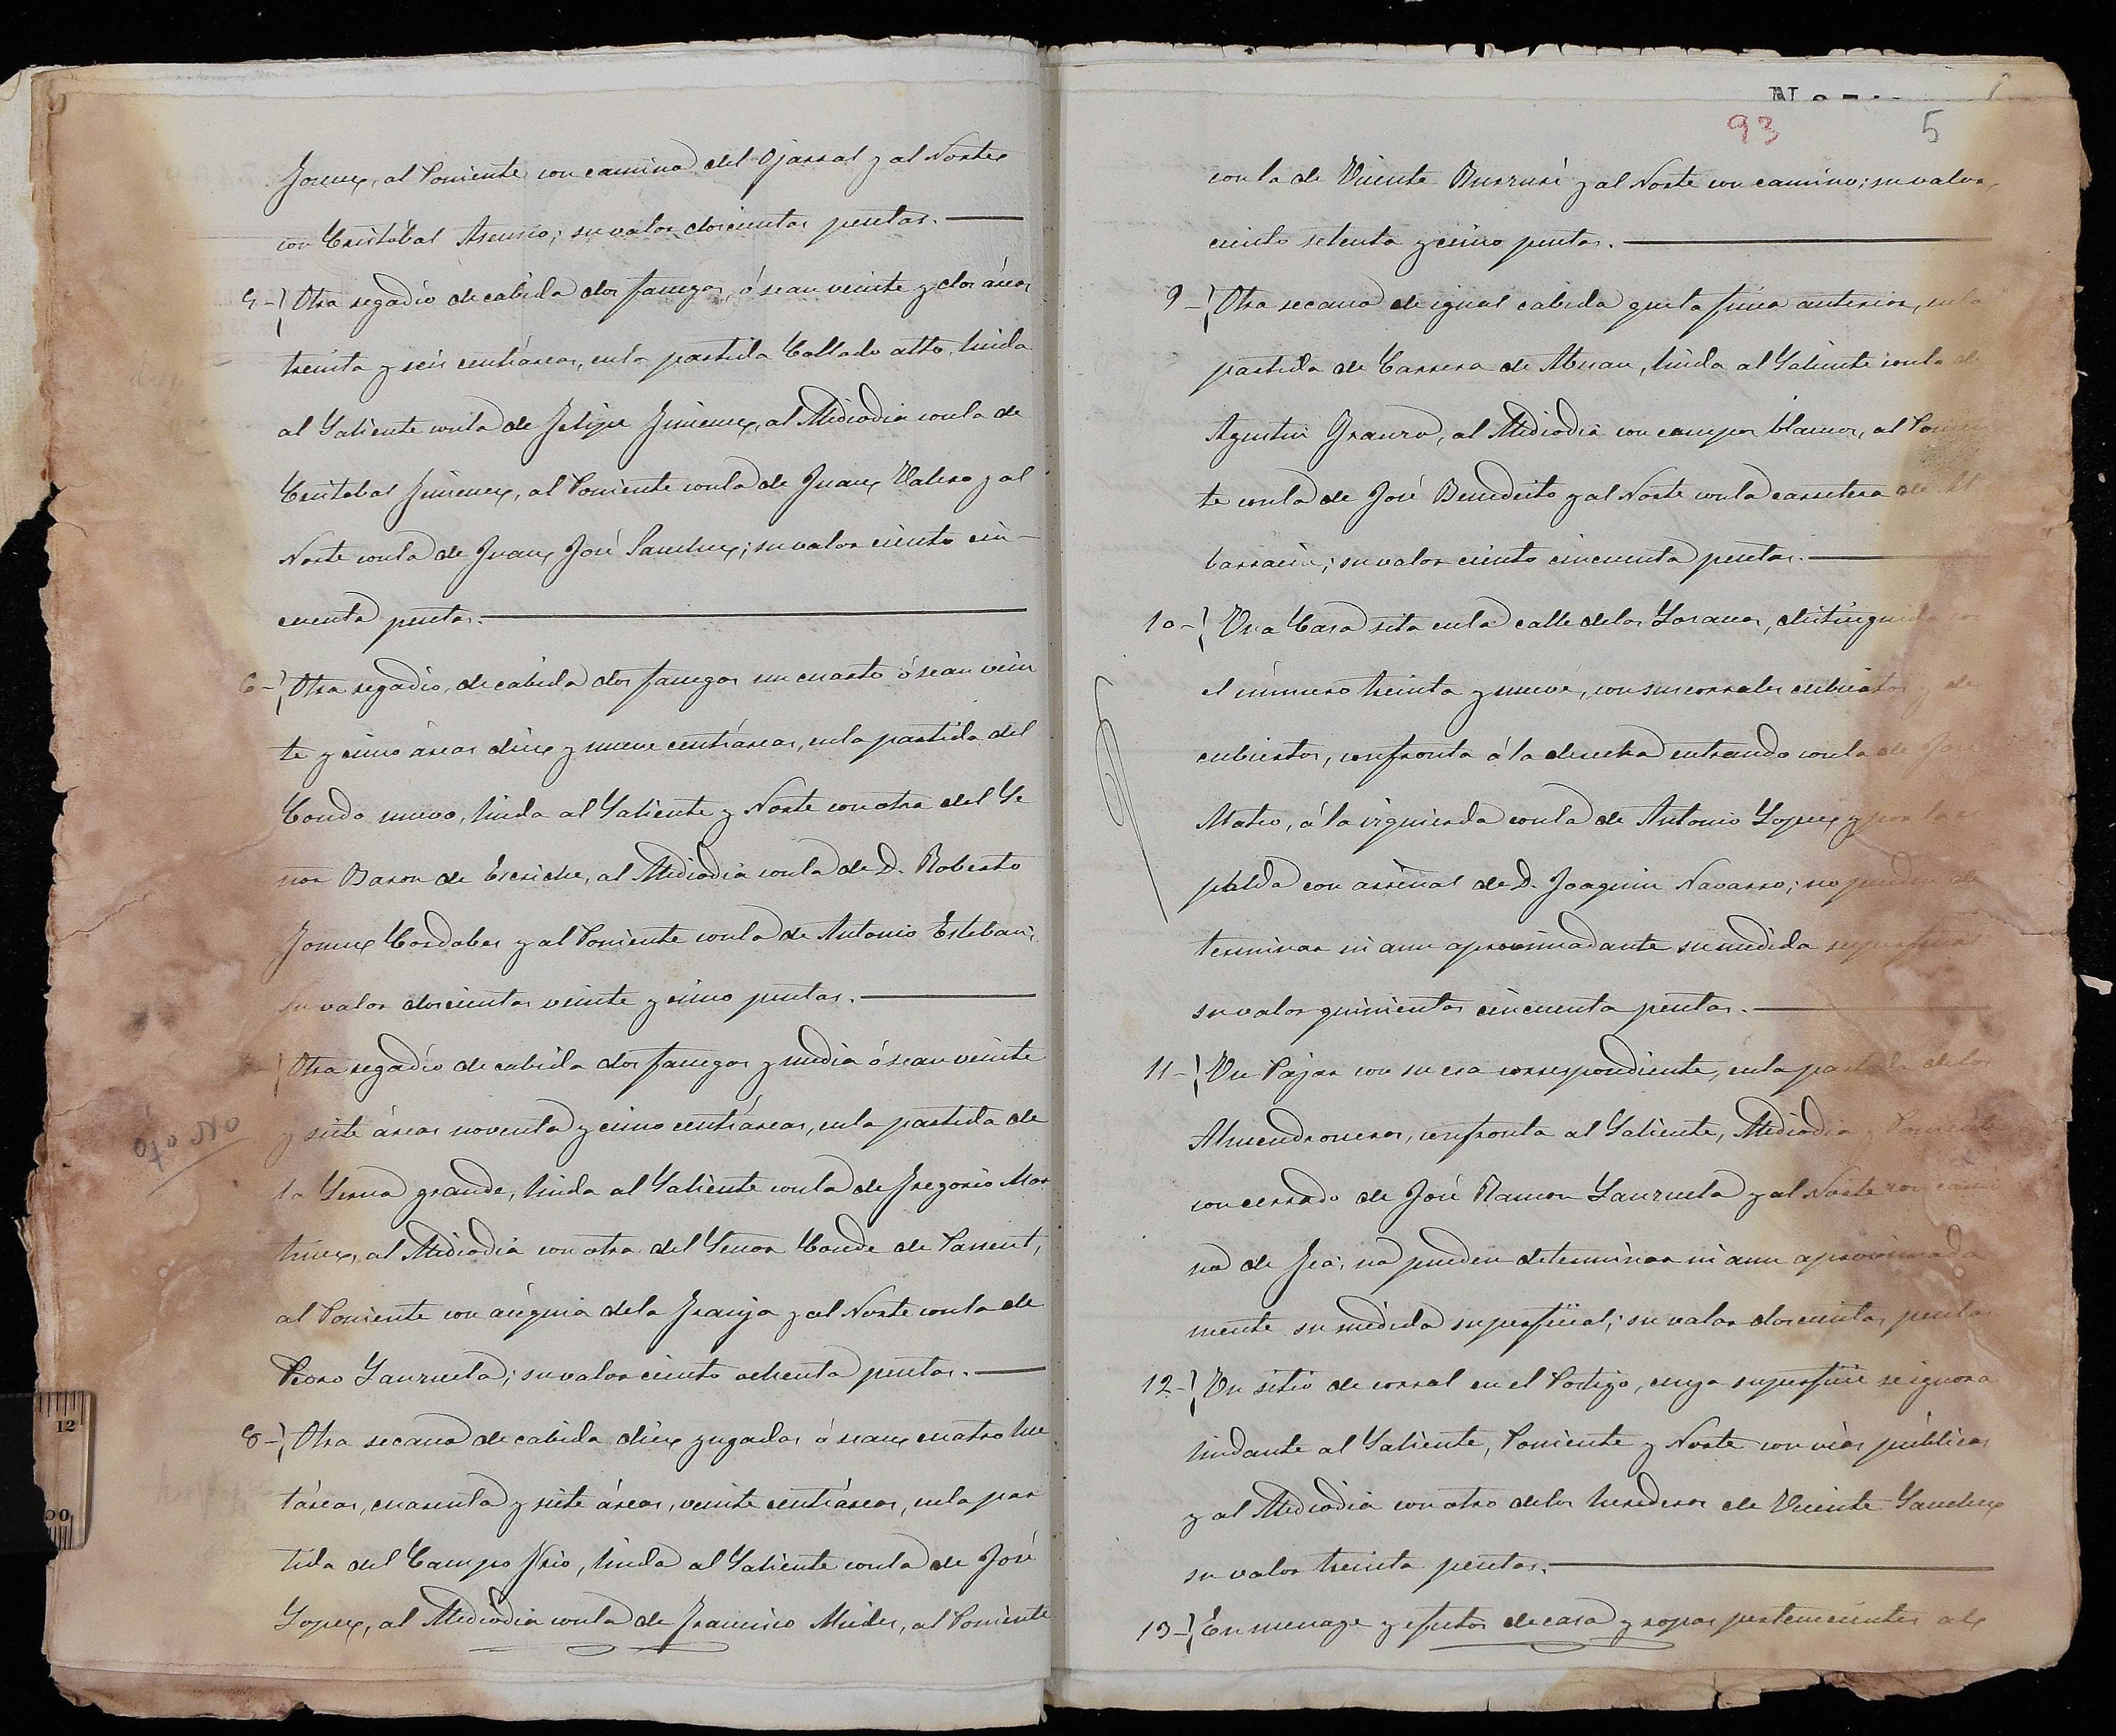 Gomez, al Poniente con camino del Ojarral y al Norte
con Cristóbal Asensio; su valor doscientas pesetas.
5 Otra regadio de cabida dos fanegas, ó sean veinte y dos áreas
treinta y seis centiáreas, en la partida Collado alto, linda
al Saliente con la de Felipe Jimenez, al Mediodia con la de
Cristobal Jimenez, al Poniente con la de Juan Valero y al
Norte con la de Juan José Sanchez; su valor ciento cin-
cuenta pesetas.
6 Otra regadio, de cabida dos fanegas un cuarto ó sean vein
te y cinco áreas diez y nueve centiáreas, en la partida del
Condo nuevo, linda al Saliente y Norte con otra del Se
ñor Baron de Escriche, al Mediodia con la de D. Roberto
Gomez Cordobes y al Poniente con la de Antonio Esteban;
su valor doscientas veinte y cinco pesetas.
Otra regadío de cabida dos fanegas y media ó sean veinte
y siete áreas noventa y cinco centiáreas, en la partida de
la Serna grande, linda al Saliente con la de Gregorio Mar
tinez, al Mediodia con otra del Señor Conde de Parsent,
al Poniente con acequia de la Granja y al Norte con la de
Pedro Sanzuela; su valor ciento ochenta pesetas.
8 Otra secano de cabida diez yugadas ó sean cuatro hec
táreas, cuarenta y siete áreas, veinte centiáreas, en la par
tida del Campo frio, linda al Saliente con la de José
Lopez, al Mediodia con la de Francisco Mudes, al Poniente
93 5
con la de Vicente Burruré y al Norte con camino; su valor,
ciento setenta y cinco pesetas.
9 Otra secano de igual cabida que la finca anterior, en la
partida de Carrera de Aznar, linda al Saliente con la de
Agustin Granro, al Mediodia con campos blancos, al Ponien
te con la de José Benedicto y al Norte con la carretera de Al
barracin; su valor ciento cincuenta pesetas.
10 Una Casa sita en la calle de los Lozanos, distinguida con
el número treinta y nueve, con sus corrales cubiertos y des
cubiertos, confronta á la derecha entrando con la de José
Mateo, á la izquierda con la de Antonio Lopez y por la es
palda con arrenal de D. Joaquin Navarro; no pueden de
terminar ni aun aproximadante su medida superficial
su valor quinientas cincuenta pesetas.
11 Un Pajar con su era correspondiente, en la partida de los
Almendroneros, confronta al Saliente, Mediodia y Poniente
con cerrado de José Ramon Sanzuela y al Norte con cami
no de Gea; no pueden determinar ni aun aproximada
mente su medida superficial; su valor doscientas pesetas
12 Un sitio de corral en el Postigo, cuya superficie se ignora
lindante al Saliente, Poniente y Norte con vias públicas
y al Mediodia con otro de los herederos de Vicente Sanchez
su valor treinta pesetas.
13 En menage y efectos de casa y ropas pertenecientes al